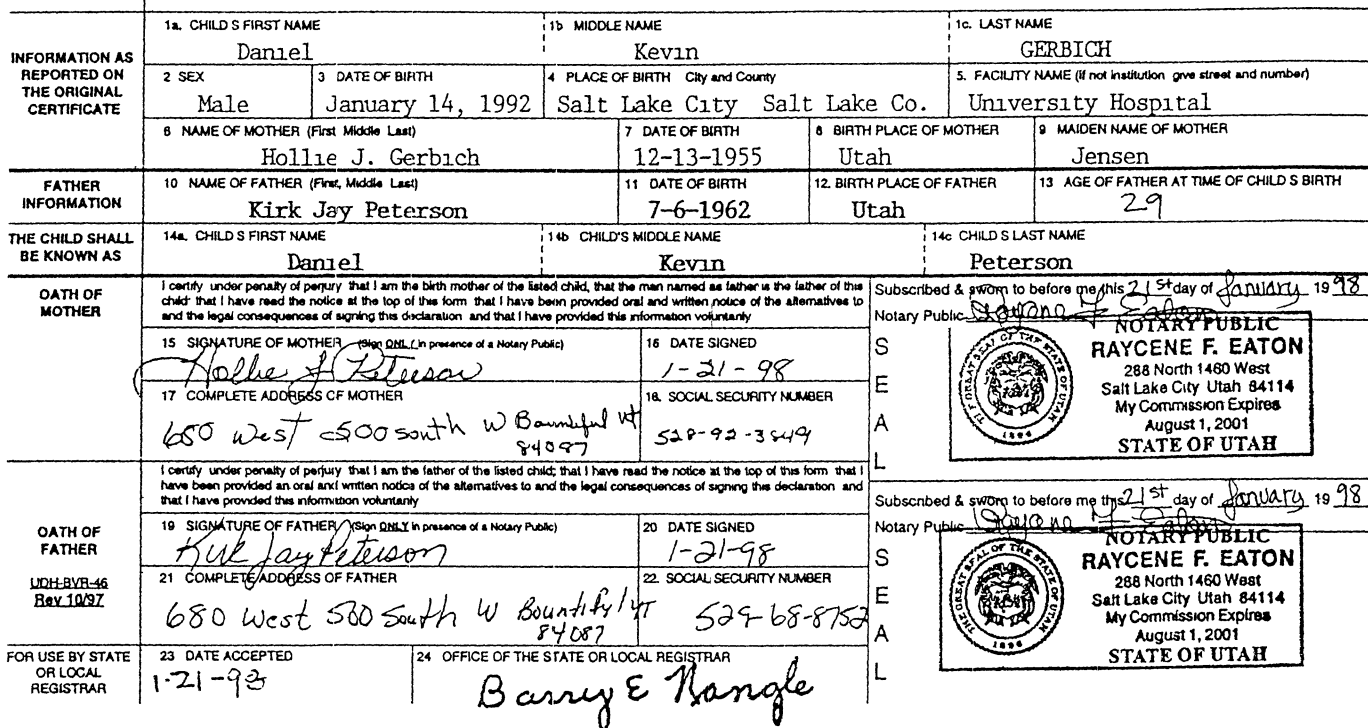 INFORMATION AS REPORTED ON THE ORIGINAL CERTIFICATE
1a. CHILD S FIRST NAME
Daniel
1b MIDDLE NAME
Kevin
1c. LAST NAME
GERBICH
2 SEX
Male
3 DATE OF BIRTH
January 14, 1992
4 PLACE OF BIRTH City and County
Salt Lake City Salt Lake Co.
5. FACILITY NAME (if not institution give street and number)
University Hospital
6 NAME OF MOTHER (First Middle Last)
Hollie J. Gerbich
7 DATE OF BIRTH
12-13-1955
8 BIRTH PLACE OF MOTHER
Utah
9 MAIDEN NAME OF MOTHER
Jensen
FATHER INFORMATION
10 NAME OF FATHER (First, Middle Last)
Kirk Jay Peterson
11 DATE OF BIRTH
7-6-1962
12. BIRTH PLACE OF FATHER
Utah
13 AGE OF FATHER AT TIME OF CHILD S BIRTH
29
THE CHILD SHALL BE KNOWN AS
14a. CHILD S FIRST NAME
Daniel
14b CHILD'S MIDDLE NAME
Kevin
14c CHILD S LAST NAME
Peterson
OATH OF MOTHER
I certify under penalty of perjury that I am the birth mother of the listed child, that the man named as father is the father of this
child that I have read the notice at the top of this form that I have been provided oral and written notice of the alternatives to
and the legal consequences of signing this declaration and that I have provided this information voluntarily
15 SIGNATURE OF MOTHER (Sign ONLY in presence of a Notary Public)
Hollie J Peterson
16 DATE SIGNED
1-21-98
17 COMPLETE ADDRESS OF MOTHER
680 West 500 South W Bountiful Ut
84087
18. SOCIAL SECURITY NUMBER
528-92-3849
SEAL
Subscribed & sworn to before me this 21st day of January 19 98
Notary Public
NOTARY PUBLIC
RAYCENE F. EATON
288 North 1460 West
Salt Lake City Utah 84114
My Commission Expires
August 1, 2001
STATE OF UTAH
THE GREAT SEAL OF THE STATE OF UTAH
1896
OATH OF FATHER
I certify under penalty of perjury that I am the father of the listed child; that I have read the notice at the top of this form that I
have been provided an oral and written notice of the alternatives to and the legal consequences of signing this declaration and
that I have provided this information voluntarily
19 SIGNATURE OF FATHER (Sign ONLY in presence of a Notary Public)
Kirk Jay Peterson
20 DATE SIGNED
1-21-98
21 COMPLETE ADDRESS OF FATHER
680 West 500 South W Bountiful UT
84087
22. SOCIAL SECURITY NUMBER
529-68-8752
SEAL
Subscribed & sworn to before me this 21st day of January 19 98
Notary Public
NOTARY PUBLIC
RAYCENE F. EATON
288 North 1460 West
Salt Lake City Utah 84114
My Commission Expires
August 1, 2001
STATE OF UTAH
THE GREAT SEAL OF THE STATE OF UTAH
1896
UDH-BVR-46
Rev 10/97
FOR USE BY STATE OR LOCAL REGISTRAR
23 DATE ACCEPTED
1-21-98
24 OFFICE OF THE STATE OR LOCAL REGISTRAR
Barry E Nangle